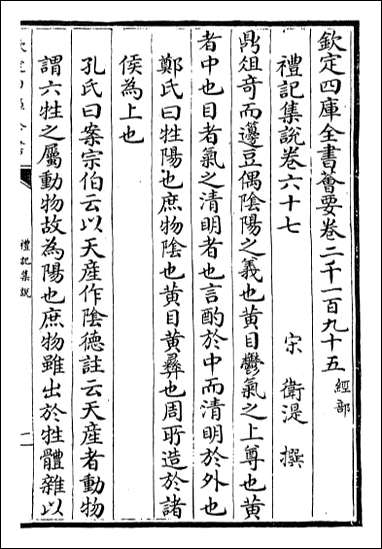 欽定四庫全書薈要卷二千一百九十五 經部
禮記集説卷六十七
宋 衛湜 撰
鼎俎奇而籩豆偶陰陽之義也黄目鬱氣之上尊也黄
者中也目者氣之清明者也言酌於中而清明於外也
鄭氏曰牲陽也庶物陰也黄目黄彛也周所造於諸
侯為上也
孔氏曰案宗伯云以天産作隂德註云天産者動物
謂六牲之屬動物故為陽也庶物雖出於牲體雜以
禮記集説
一